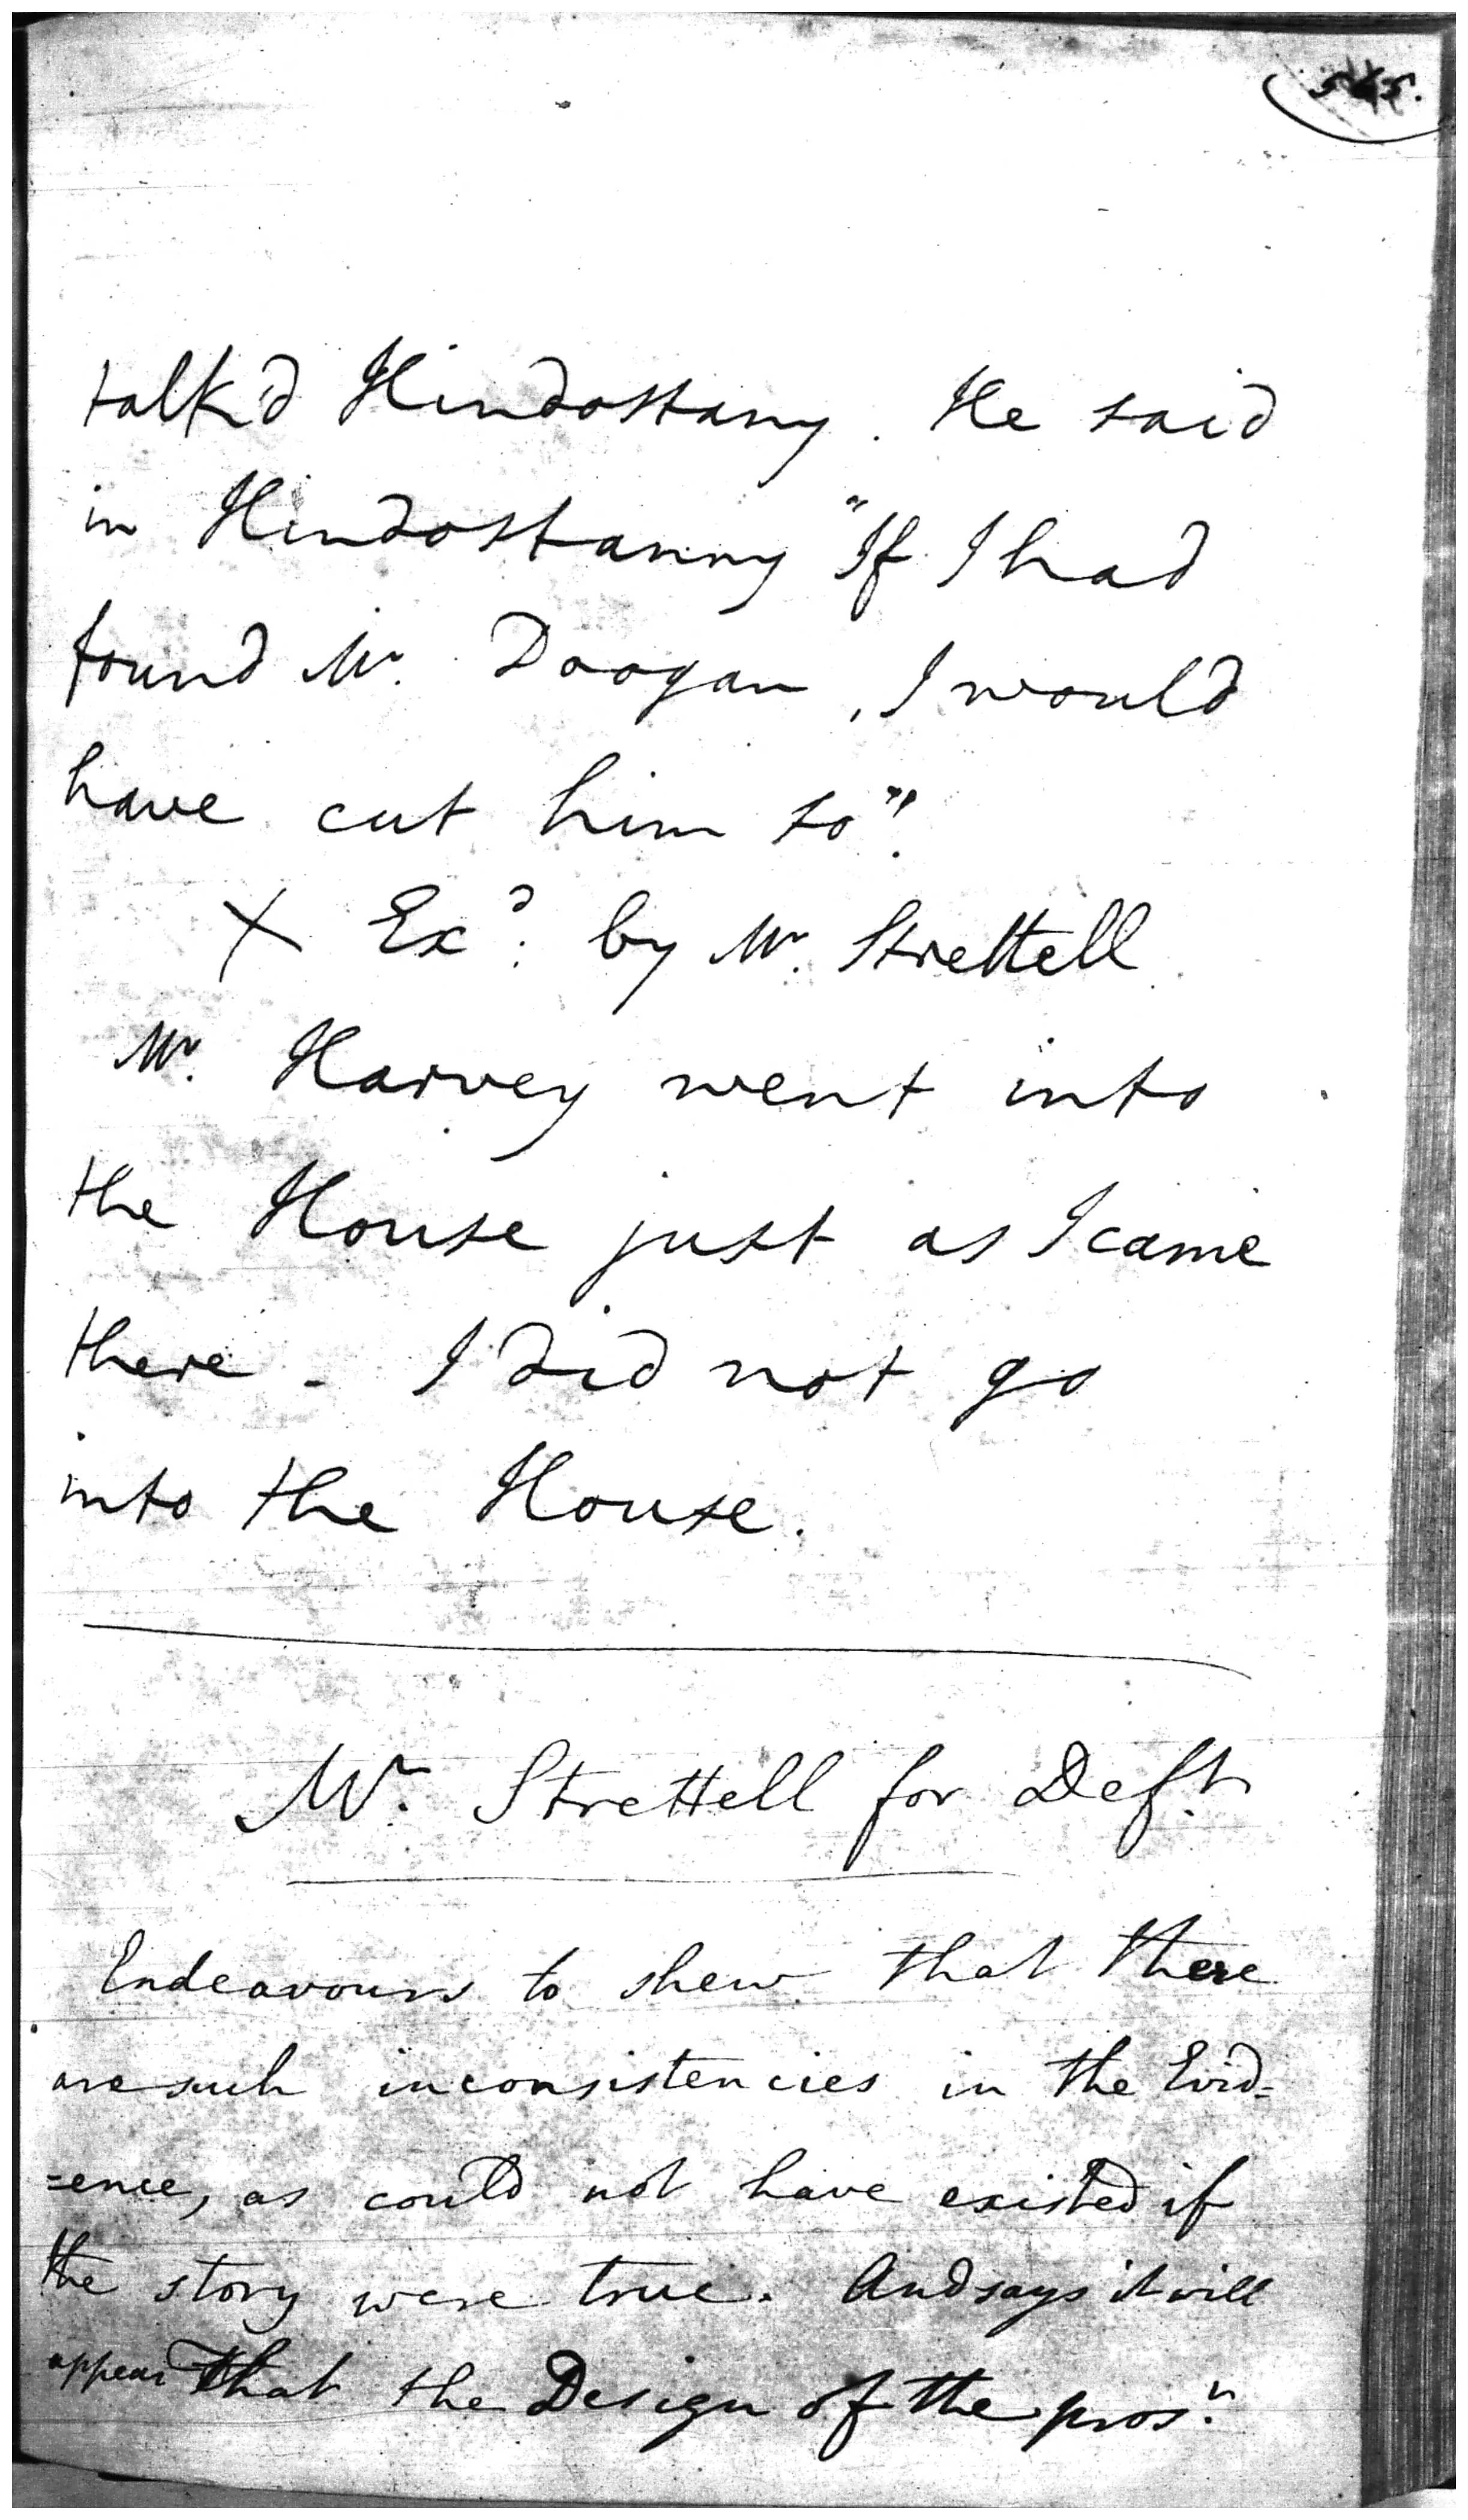 talk'd Hindostany. He said
in Hindostanny "If I had
found Mr. Doogan, I would
have cut him so".
X Exd. by Mr. Strettell
Mr. Harvey went into
the House just as I came
there - I did not go
into the House.
Mr. Strettell for Deft.
Endeavours to shew that there
are such inconsistencies in the Evid=
=ence, as could not have existed if
the story were true. And says it will
appear that the Design of the prosn.